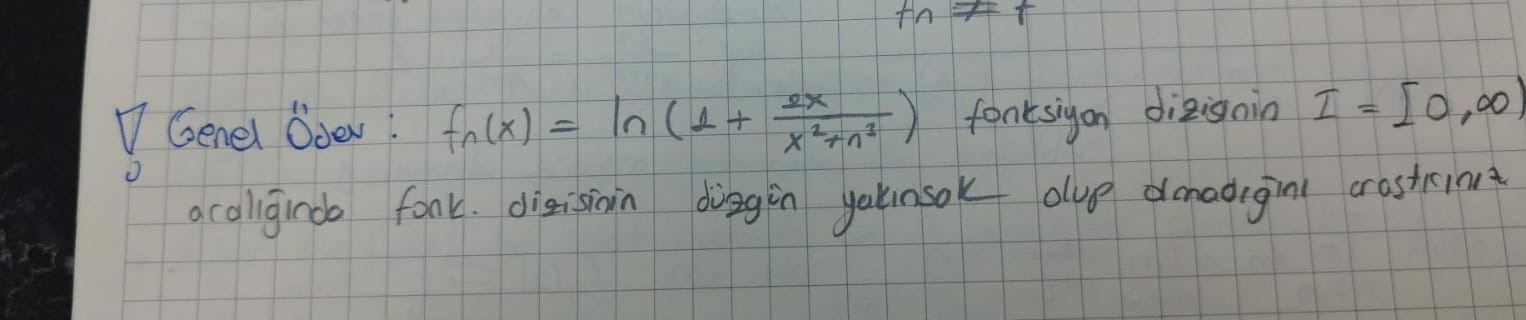 fn ≠ f
! Genel Ödev: fn(x) = ln(1 + 2x/(x²+n³)) fonksiyon dizisinin I = [0,∞)
aralığında fonk. dizisinin düzgün yakınsak olup olmadığını araştırınız